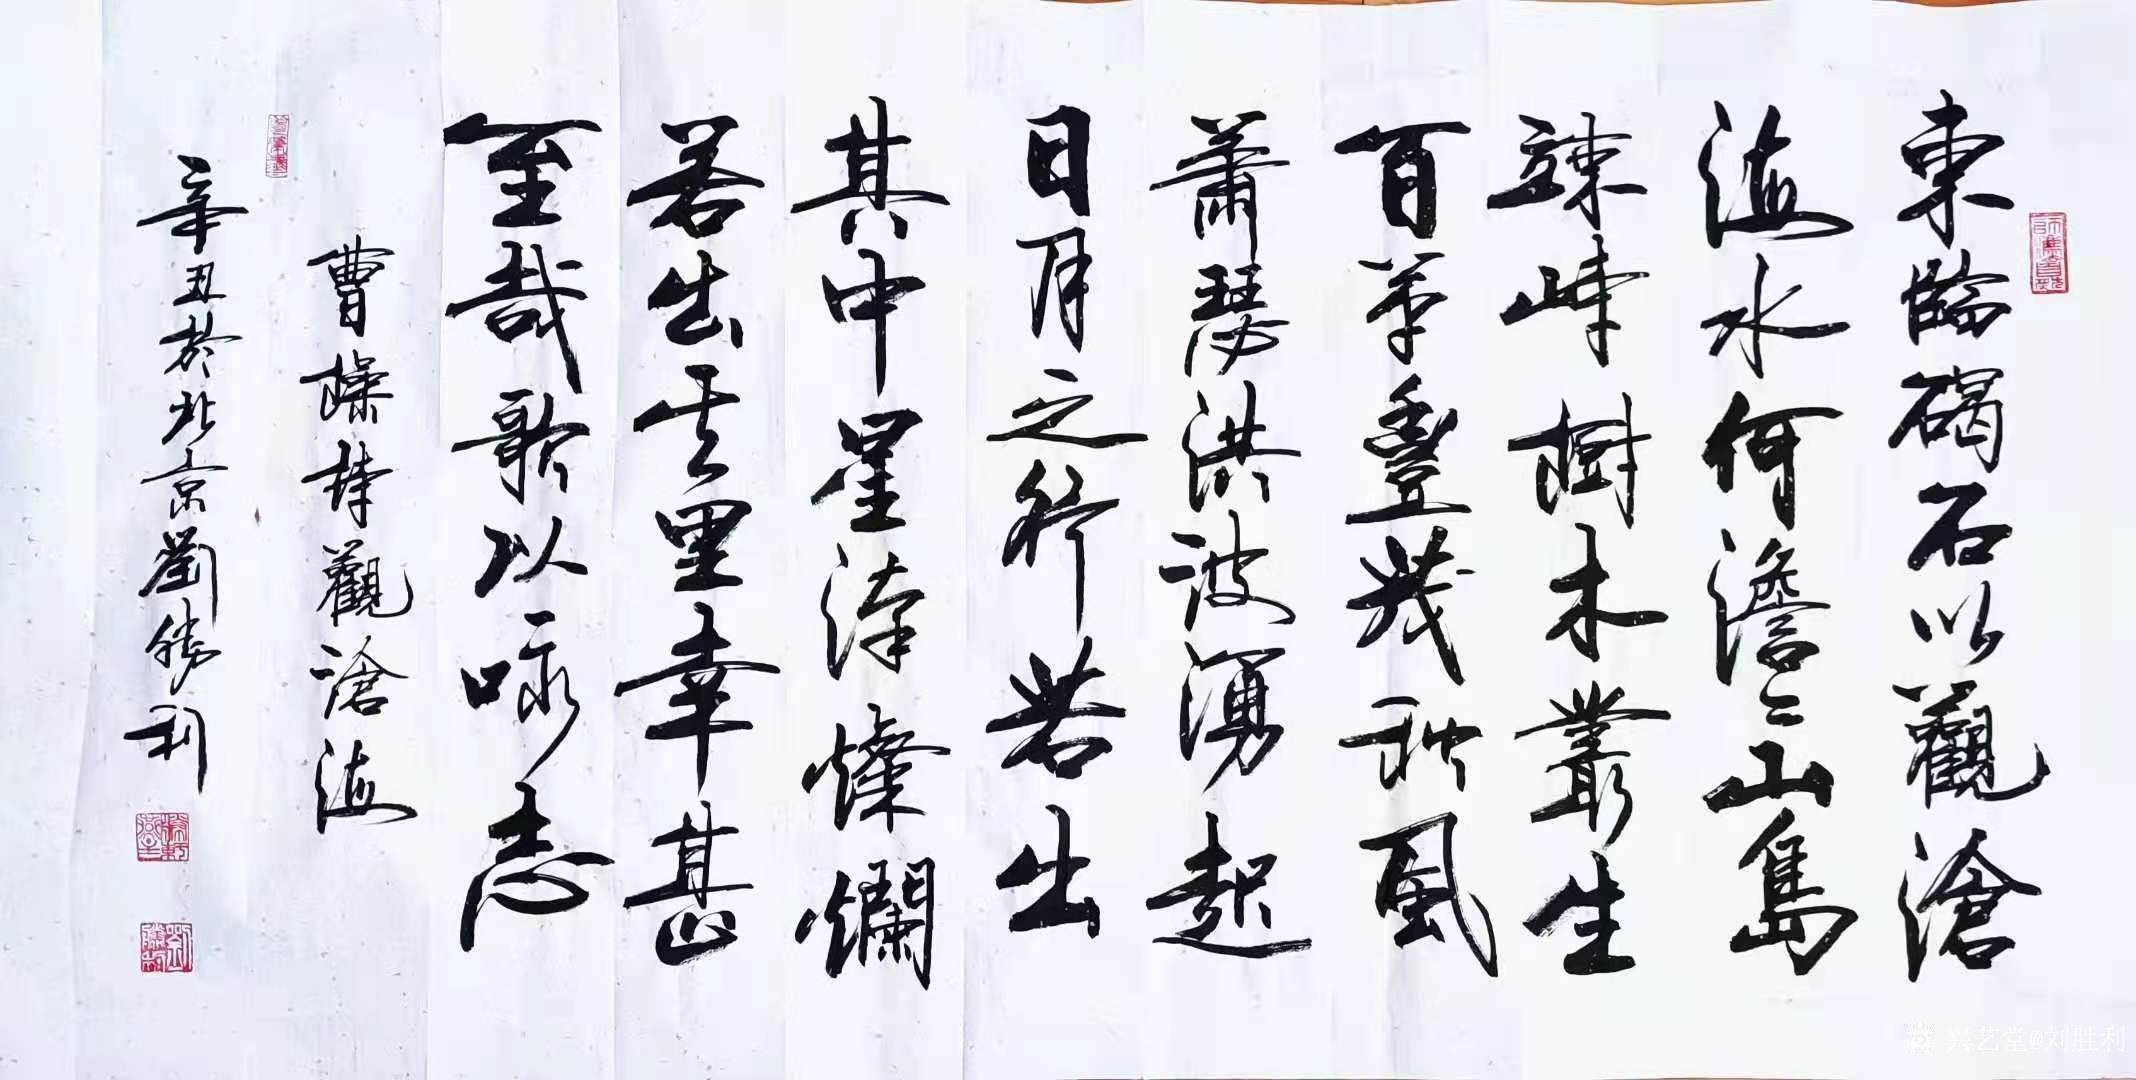 東臨碣石以觀滄
海水何澹〻山島
竦峙樹木叢生
百草豐茂秋風
蕭瑟洪波湧起
日月之行若出
其中星漢燦爛
若出其里幸甚
至哉歌以咏志
曹操詩觀滄海
辛丑於北京劉勝利
兴艺堂@刘胜利